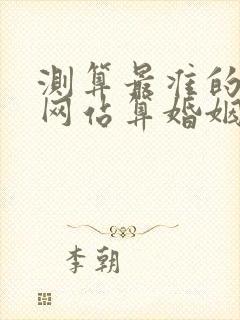 测算最准的
网占算婚姻
李朝